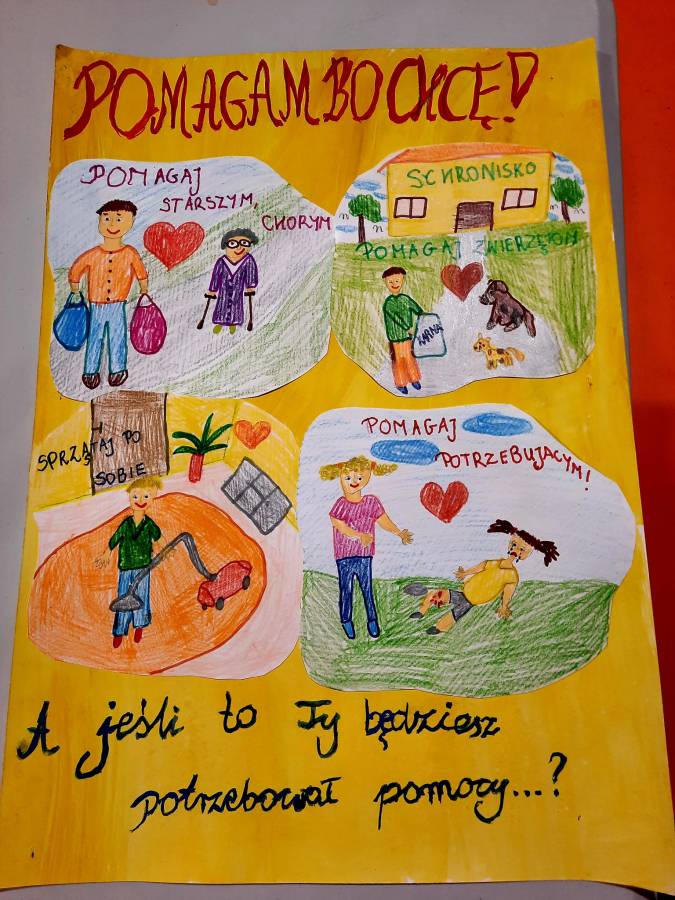 POMAGAM BO CHCĘ!
POMAGAJ
STARSZYM,
CHORYM
SCHRONISKO
POMAGAJ ZWIERZĘTOM
KARMA
SPRZĄTAJ PO
SOBIE
POMAGAJ
POTRZEBUJĄCYM!
A jeśli to Ty będziesz
potrzebował pomocy...?